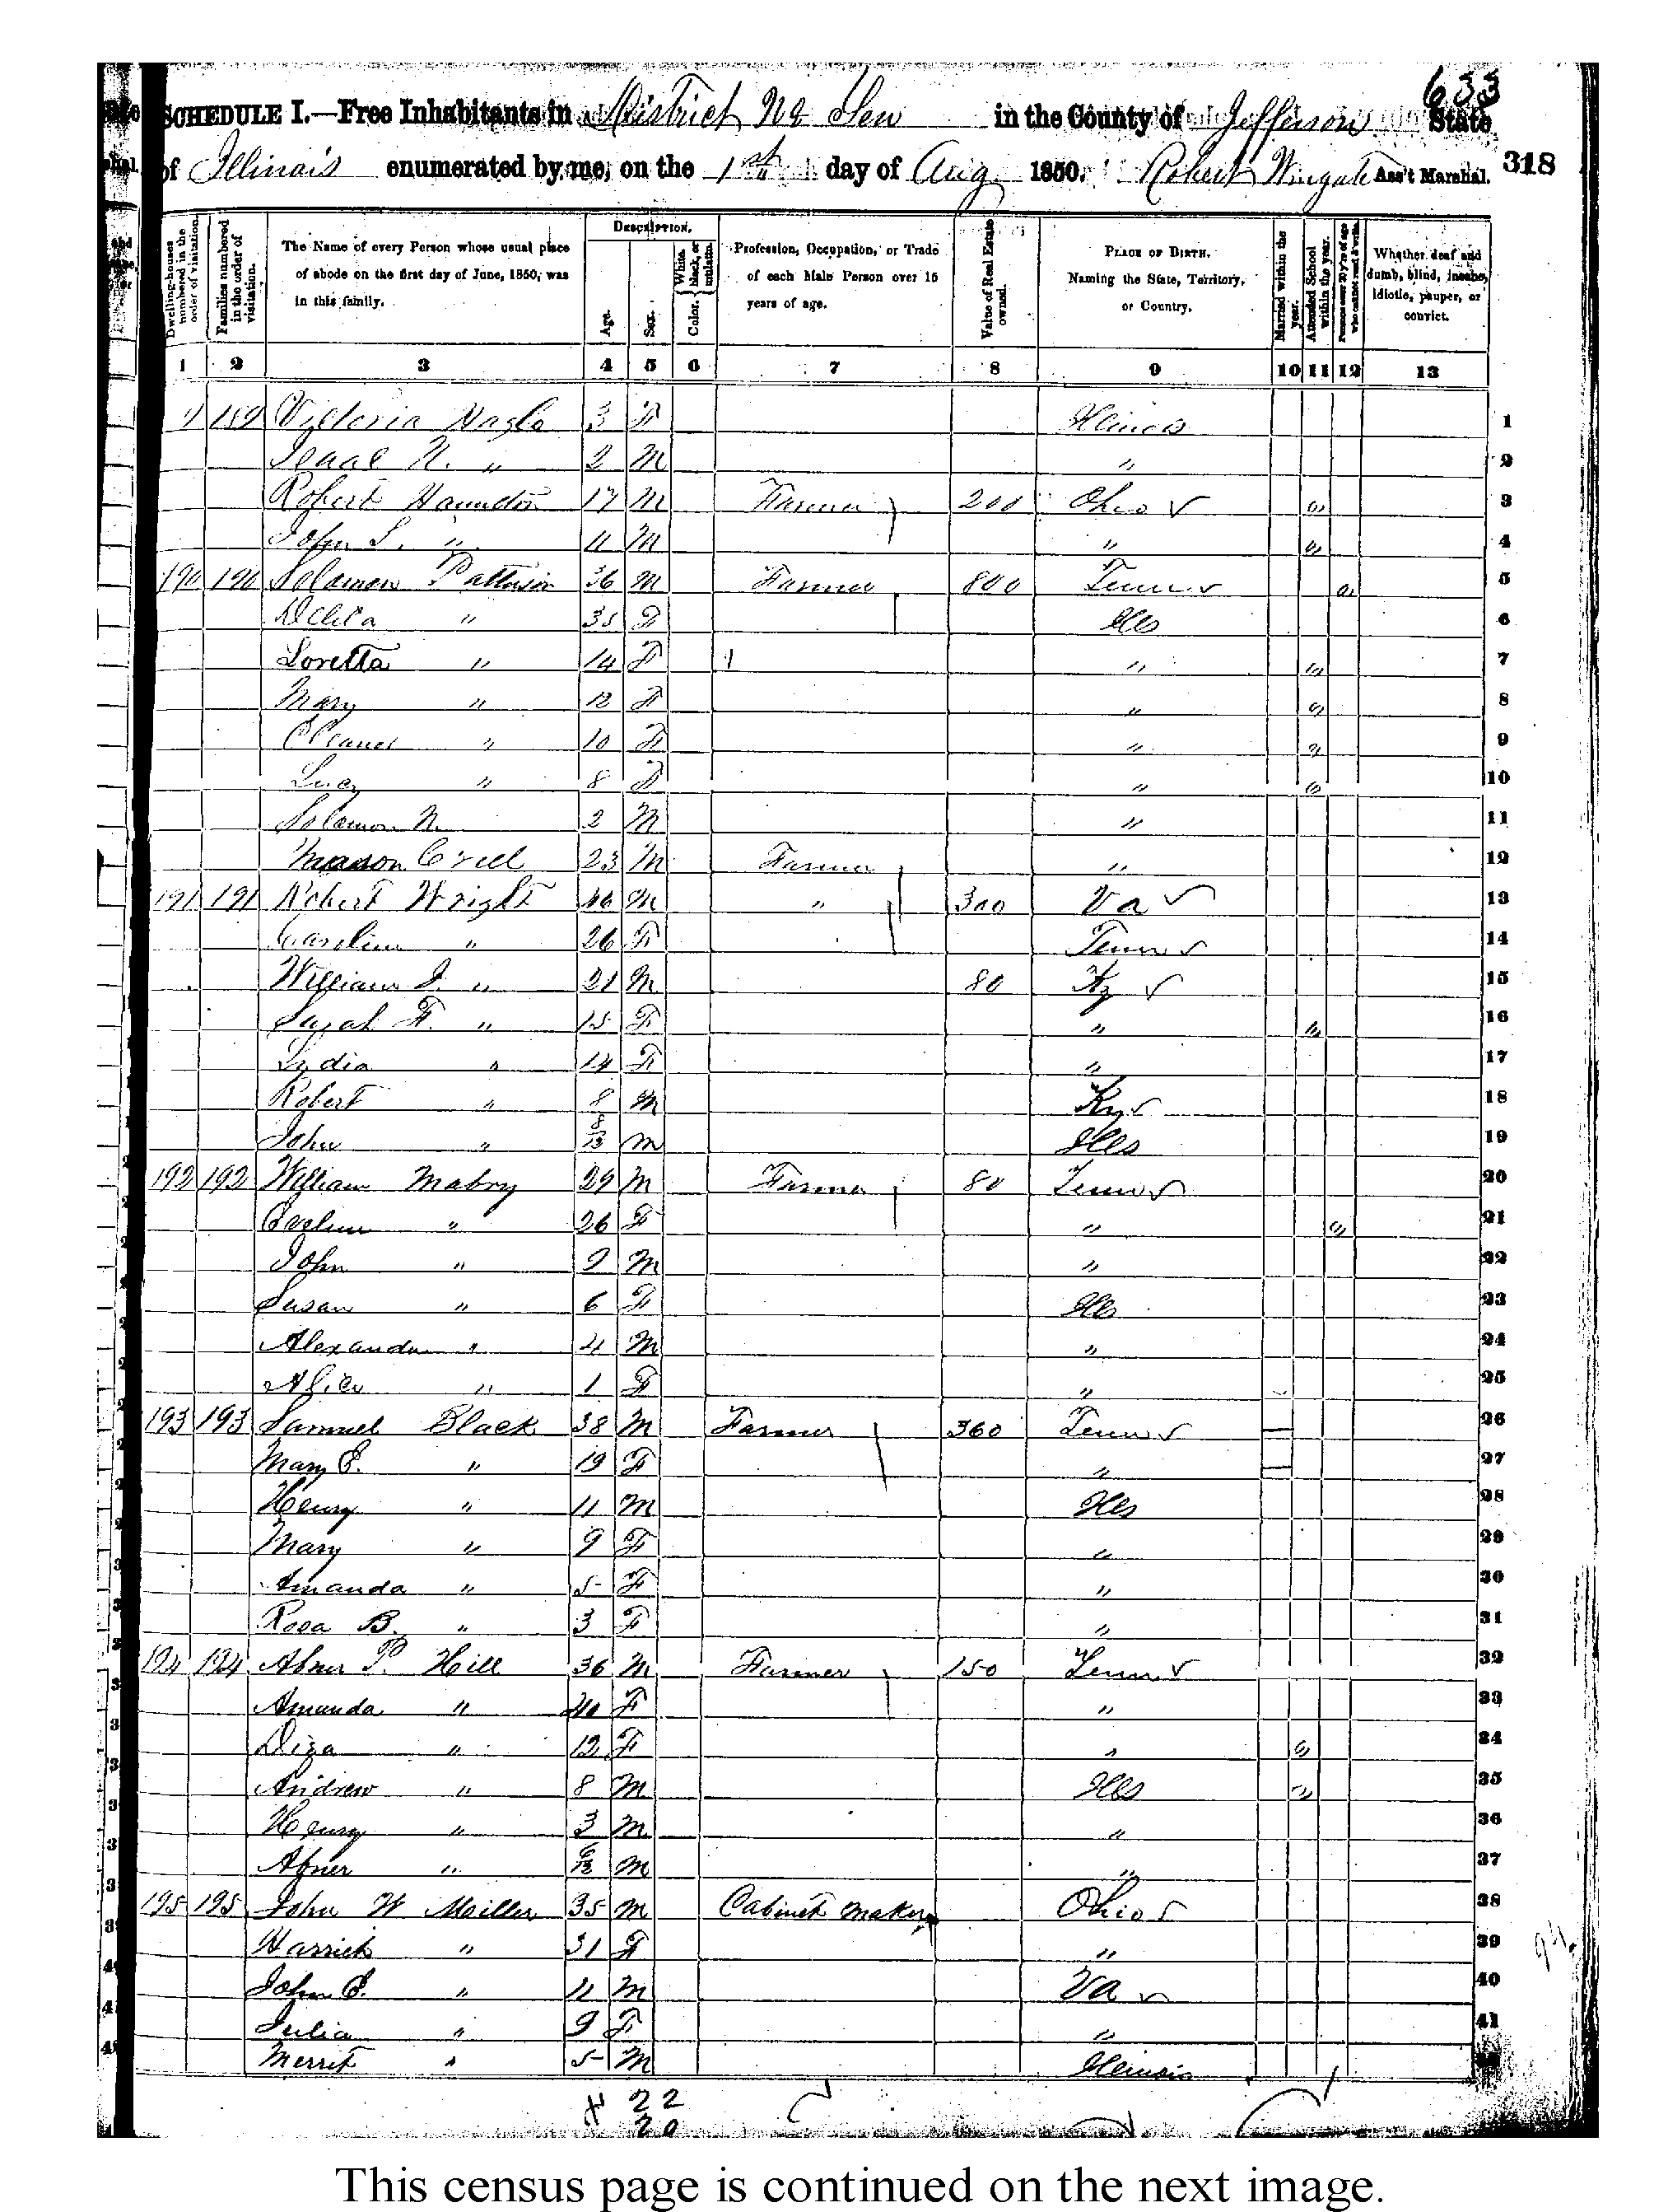 633
SCHEDULE I.—Free Inhabitants in District No Ten in the County of Jefferson State
of Illinois enumerated by me, on the 1st day of Aug 1850. Robert Wingate Ass't Marshal. 318
Dwelling-houses numbered in the order of visitation.
Families numbered in the order of visitation.
The Name of every Person whose usual place of abode on the first day of June, 1850, was in this family.
DESCRIPTION.
Age.
Sex.
Color. { White, black, or mulatto.
Profession, Occupation, or Trade of each Male Person over 15 years of age.
Value of Real Estate owned.
PLACE OF BIRTH. Naming the State, Territory, or Country.
Married within the year.
Attended School within the year.
Persons over 20 y'rs of age who cannot read & write.
Whether deaf and dumb, blind, insane, idiotic, pauper, or convict.
1 2 3 4 5 6 7 8 9 10 11 12 13
189 Victoria 3 F Illinois 1
Isaac N. " 2 M " 2
Robert 17 M Farmer 200 Ohio " 3
John S. " 11 M " " 4
190 190 Solomon 36 M Farmer 800 Tenn 5
" 35 F Ills 6
Loretta " 14 F " " 7
Mary " 12 F " " 8
Eleanor " 10 F " " 9
Lucy " 8 F " " 10
Solomon N. 2 M " 11
Mason 23 M Farmer " 12
191 191 Robert Wright 46 M " 300 Va 13
Caroline " 26 F Tenn 14
William J. " 21 M 80 Ky 15
Sarah F. " 15 F " " 16
Lydia " 14 F " 17
Robert " 8 M Ky 18
John " 8/12 M Ills 19
192 192 William Mabry 29 M Farmer 80 Tenn 20
Eveline " 26 F " " 21
John " 9 M " 22
Susan " 6 F Ills 23
Alexander " 4 M " 24
Alice " 1 F " 25
193 193 Samuel Black 38 M Farmer 360 Tenn 26
Mary E. " 19 F " 27
Henry " 11 M Ills 28
Mary " 9 F " 29
Amanda " 5 F " 30
Rosa B. " 3 F " 31
194 194 Abner P. Hill 36 M Farmer 150 Tenn 32
Amanda " 40 F " 33
" 12 F " " 34
Andrew " 8 M Ills " 35
Henry " 3 M " 36
Abner " 6/12 M " 37
195 195 John W Miller 35 M Cabinet maker Ohio 38
Harriet " 31 F " 39
John E. " 11 M Va 40
Julia " 9 F " 41
Merrit " 5 M Illinois
22
20
94.
This census page is continued on the next image.